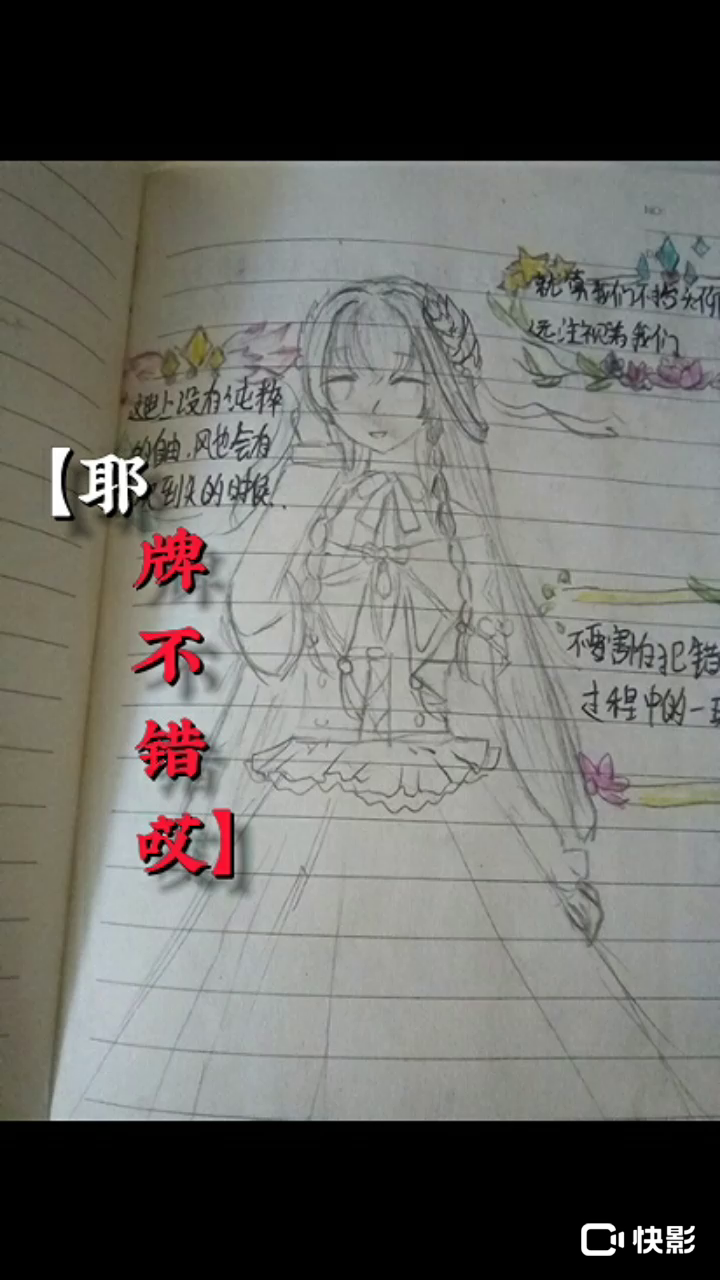 NO:
就算我们不抬头仰
远注视着我们
这世上没有纯粹
的自由,风也会有
到头的时候.
【耶
牌
不
错
哎】
不要害怕犯错
过程中的一
快影